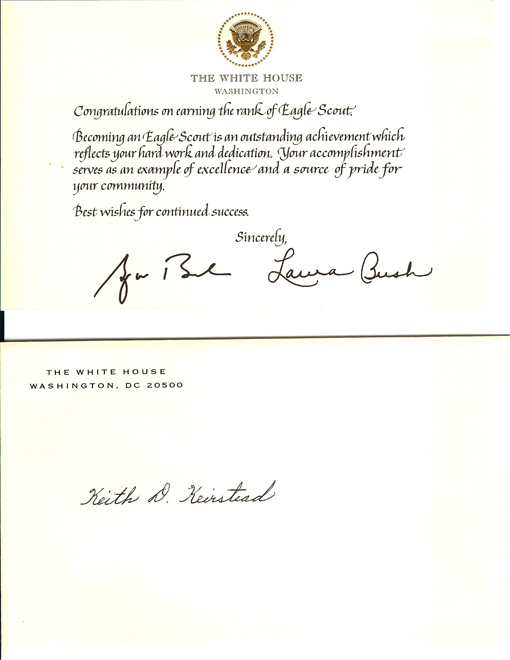 THE WHITE HOUSE
WASHINGTON
Congratulations on earning the rank of Eagle Scout.
Becoming an Eagle Scout is an outstanding achievement which
reflects your hard work and dedication. Your accomplishment
serves as an example of excellence and a source of pride for
your community.
Best wishes for continued success.
Sincerely,
Laura Bush
THE WHITE HOUSE
WASHINGTON, DC 20500
Keith D. Keirstead